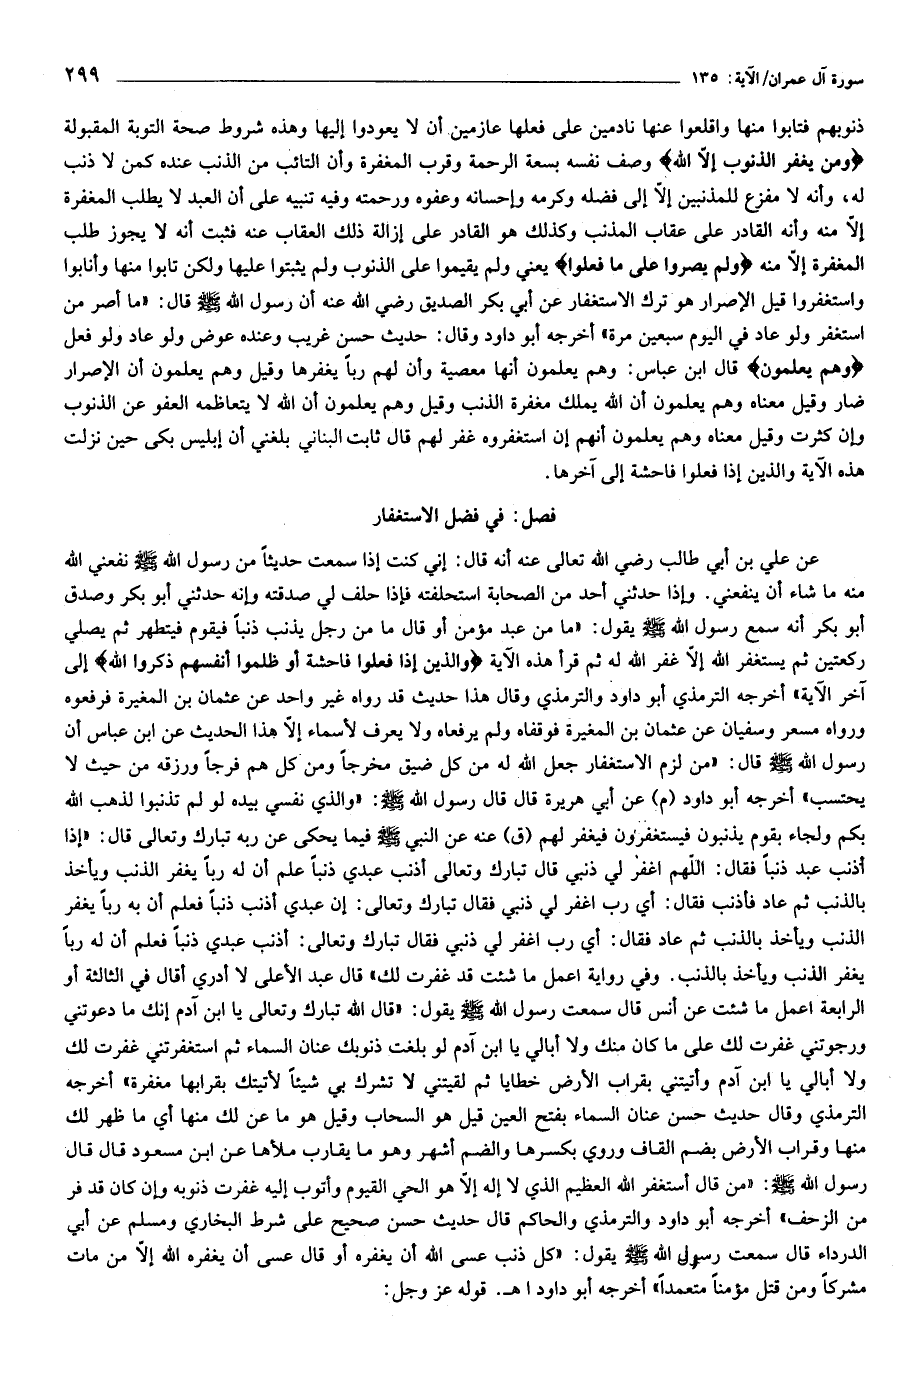 سورة آل عمران/ الآية: ١٣٥ ٢٩٩
ذنوبهم فتابوا منها واقلعوا عنها نادمين على فعلها عازمين أن لا يعودوا إليها وهذه شروط صحة التوبة المقبولة
﴿ومن يغفر الذنوب إلاّ الله﴾ وصف نفسه بسعة الرحمة وقرب المغفرة وأن التائب من الذنب عنده كمن لا ذنب
له، وأنه لا مفزع للمذنبين إلاّ إلى فضله وكرمه وإحسانه وعفوه ورحمته وفيه تنبيه على أن العبد لا يطلب المغفرة
إلاّ منه وأنه القادر على عقاب المذنب وكذلك هو القادر على إزالة ذلك العقاب عنه فثبت أنه لا يجوز طلب
المغفرة إلاّ منه ﴿ولم يصروا على ما فعلوا﴾ يعني ولم يقيموا على الذنوب ولم يثبتوا عليها ولكن تابوا منها وأنابوا
واستغفروا قيل الإصرار هو ترك الاستغفار عن أبي بكر الصديق رضي الله عنه أن رسول الله ﷺ قال: «ما أصر من
استغفر ولو عاد في اليوم سبعين مرة» أخرجه أبو داود وقال: حديث حسن غريب وعنده عوض ولو عاد ولو فعل
﴿وهم يعلمون﴾ قال ابن عباس: وهم يعلمون أنها معصية وأن لهم رباً يغفرها وقيل وهم يعلمون أن الإصرار
ضار وقيل معناه وهم يعلمون أن الله يملك مغفرة الذنب وقيل وهم يعلمون أن الله لا يتعاظمه العفو عن الذنوب
وإن كثرت وقيل معناه وهم يعلمون أنهم إن استغفروه غفر لهم قال ثابت البناني بلغني أن إبليس بكى حين نزلت
هذه الآية والذين إذا فعلوا فاحشة إلى آخرها.
فصل: في فضل الاستغفار
عن علي بن أبي طالب رضي الله تعالى عنه أنه قال: إني كنت إذا سمعت حديثاً من رسول الله ﷺ نفعني الله
منه ما شاء أن ينفعني. وإذا حدثني أحد من الصحابة استحلفته فإذا حلف لي صدقته وإنه حدثني أبو بكر وصدق
أبو بكر أنه سمع رسول الله ﷺ يقول: «ما من عبد مؤمن أو قال ما من رجل يذنب ذنباً فيقوم فيتطهر ثم يصلي
ركعتين ثم يستغفر الله إلاّ غفر الله له ثم قرأ هذه الآية ﴿والذين إذا فعلوا فاحشة أو ظلموا أنفسهم ذكروا الله﴾ إلى
آخر الآية» أخرجه الترمذي أبو داود والترمذي وقال هذا حديث قد رواه غير واحد عن عثمان بن المغيرة فرفعوه
ورواه مسعر وسفيان عن عثمان بن المغيرة فوقفاه ولم يرفعاه ولا يعرف لأسماء إلاّ هذا الحديث عن ابن عباس أن
رسول الله ﷺ قال: «من لزم الاستغفار جعل الله له من كل ضيق مخرجاً ومن كل هم فرجاً ورزقه من حيث لا
يحتسب» أخرجه أبو داود (م) عن أبي هريرة قال قال رسول الله ﷺ: «والذي نفسي بيده لو لم تذنبوا لذهب الله
بكم ولجاء بقوم يذنبون فيستغفرون فيغفر لهم (ق) عنه عن النبي ﷺ فيما يحكى عن ربه تبارك وتعالى قال: «إذا
أذنب عبد ذنباً فقال: اللّهم اغفر لي ذنبي قال تبارك وتعالى أذنب عبدي ذنباً علم أن له رباً يغفر الذنب ويأخذ
بالذنب ثم عاد فأذنب فقال: أي رب اغفر لي ذنبي فقال تبارك وتعالى: إن عبدي أذنب ذنباً فعلم أن به رباً يغفر
الذنب ويأخذ بالذنب ثم عاد فقال: أي رب اغفر لي ذنبي فقال تبارك وتعالى: أذنب عبدي ذنباً فعلم أن له رباً
يغفر الذنب ويأخذ بالذنب. وفي رواية اعمل ما شئت قد غفرت لك» قال عبد الأعلى لا أدري أقال في الثالثة أو
الرابعة اعمل ما شئت عن أنس قال سمعت رسول الله ﷺ يقول: «قال الله تبارك وتعالى يا ابن آدم إنك ما دعوتني
ورجوتني غفرت لك على ما كان منك ولا أبالي يا ابن آدم لو بلغت ذنوبك عنان السماء ثم استغفرتني غفرت لك
ولا أبالي يا ابن آدم وأتيتني بقراب الأرض خطايا ثم لقيتني لا تشرك بي شيئاً لأتيتك بقرابها مغفرة» أخرجه
الترمذي وقال حديث حسن عنان السماء بفتح العين قيل هو السحاب وقيل هو ما عن لك منها أي ما ظهر لك
منها وقراب الأرض بضم القاف وروي بكسرها والضم أشهر وهو ما يقارب ملأها عن ابن مسعود قال قال
رسول الله ﷺ: «من قال أستغفر الله العظيم الذي لا إله إلاّ هو الحي القيوم وأتوب إليه غفرت ذنوبه وإن كان قد فر
من الزحف» أخرجه أبو داود والترمذي والحاكم قال حديث حسن صحيح على شرط البخاري ومسلم عن أبي
الدرداء قال سمعت رسول الله ﷺ يقول: «كل ذنب عسى الله أن يغفره أو قال عسى أن يغفره الله إلاّ من مات
مشركاً ومن قتل مؤمناً متعمداً» أخرجه أبو داود ا هـ. قوله عز وجل: